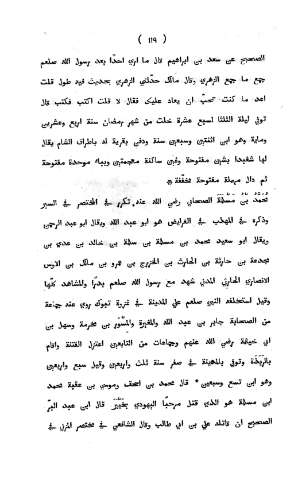 ( ١١٩ )
الصحيح عن سعد بن ابراهيم قال ما ارى احدًا بعد رسول الله صلعم
جمع ما جمع الزهري وقال مالك حدّثني الزهري بحديث فيه طول قلت
اعد ما كنت تحبّ ان يعاد عليك فقال لا قلت اكتب فكتب قال
توفى ليلة الثلثا لسبع عشرة خلت من شهر رمضان سنة اربع وعشرين
وماية وهو ابن اثنتين وسبعين سنة ودفن بقرية له باطراف الشام يقال
لها شغبدا بشين مفتوحة وغين ساكنة معجمتين وبباء موحدة مفتوحة
ثم دال مهملة مفتوحة مخفّفة ۞
محمد بن مَسْلَمَة الصحابي رضى الله عنه تكرر في المختصر في السير
وذكره في المهذب في الفرايض هو ابو عبد الله ويقال ابو عبد الرحمن
ويقال ابو سعيد محمد بن مسلمة بن سلمة بن خالد بن عدى بن
مجدعة بن حارثة بن الحارث بن الخزرج بن عمرو بن مالك بن الاوس
الانصارى الحارثى المدنى شهد مع رسول الله صلعم بدرًا والمشاهد كلّها
وقيل استخلفه النبى صلعم على المدينة في غزوة تبوك روى عنه جماعة
من الصحابة جابر بن عبد الله والمغيرة والمِسْوَر بن مخرمة وسهل بن
ابى حثمة رضى الله عنهم وجماعات من التابعين اعتزل الفتنة واقام
بالرَبَذَة وتوفى بالمدينة في صفر سنة ثلث واربعين وقيل سبع واربعين
وهو ابن سبع وسبعين * قال محمد بن اسحق وموسى بن عقبة محمد
ابن مسلمة هو الذى قتل مرحبًا اليهودى بخَيْبَر قال ابن عبد البر
الصحيح ان قاتله على بن ابى طالب وقال الشافعى في مختصر المزنى في